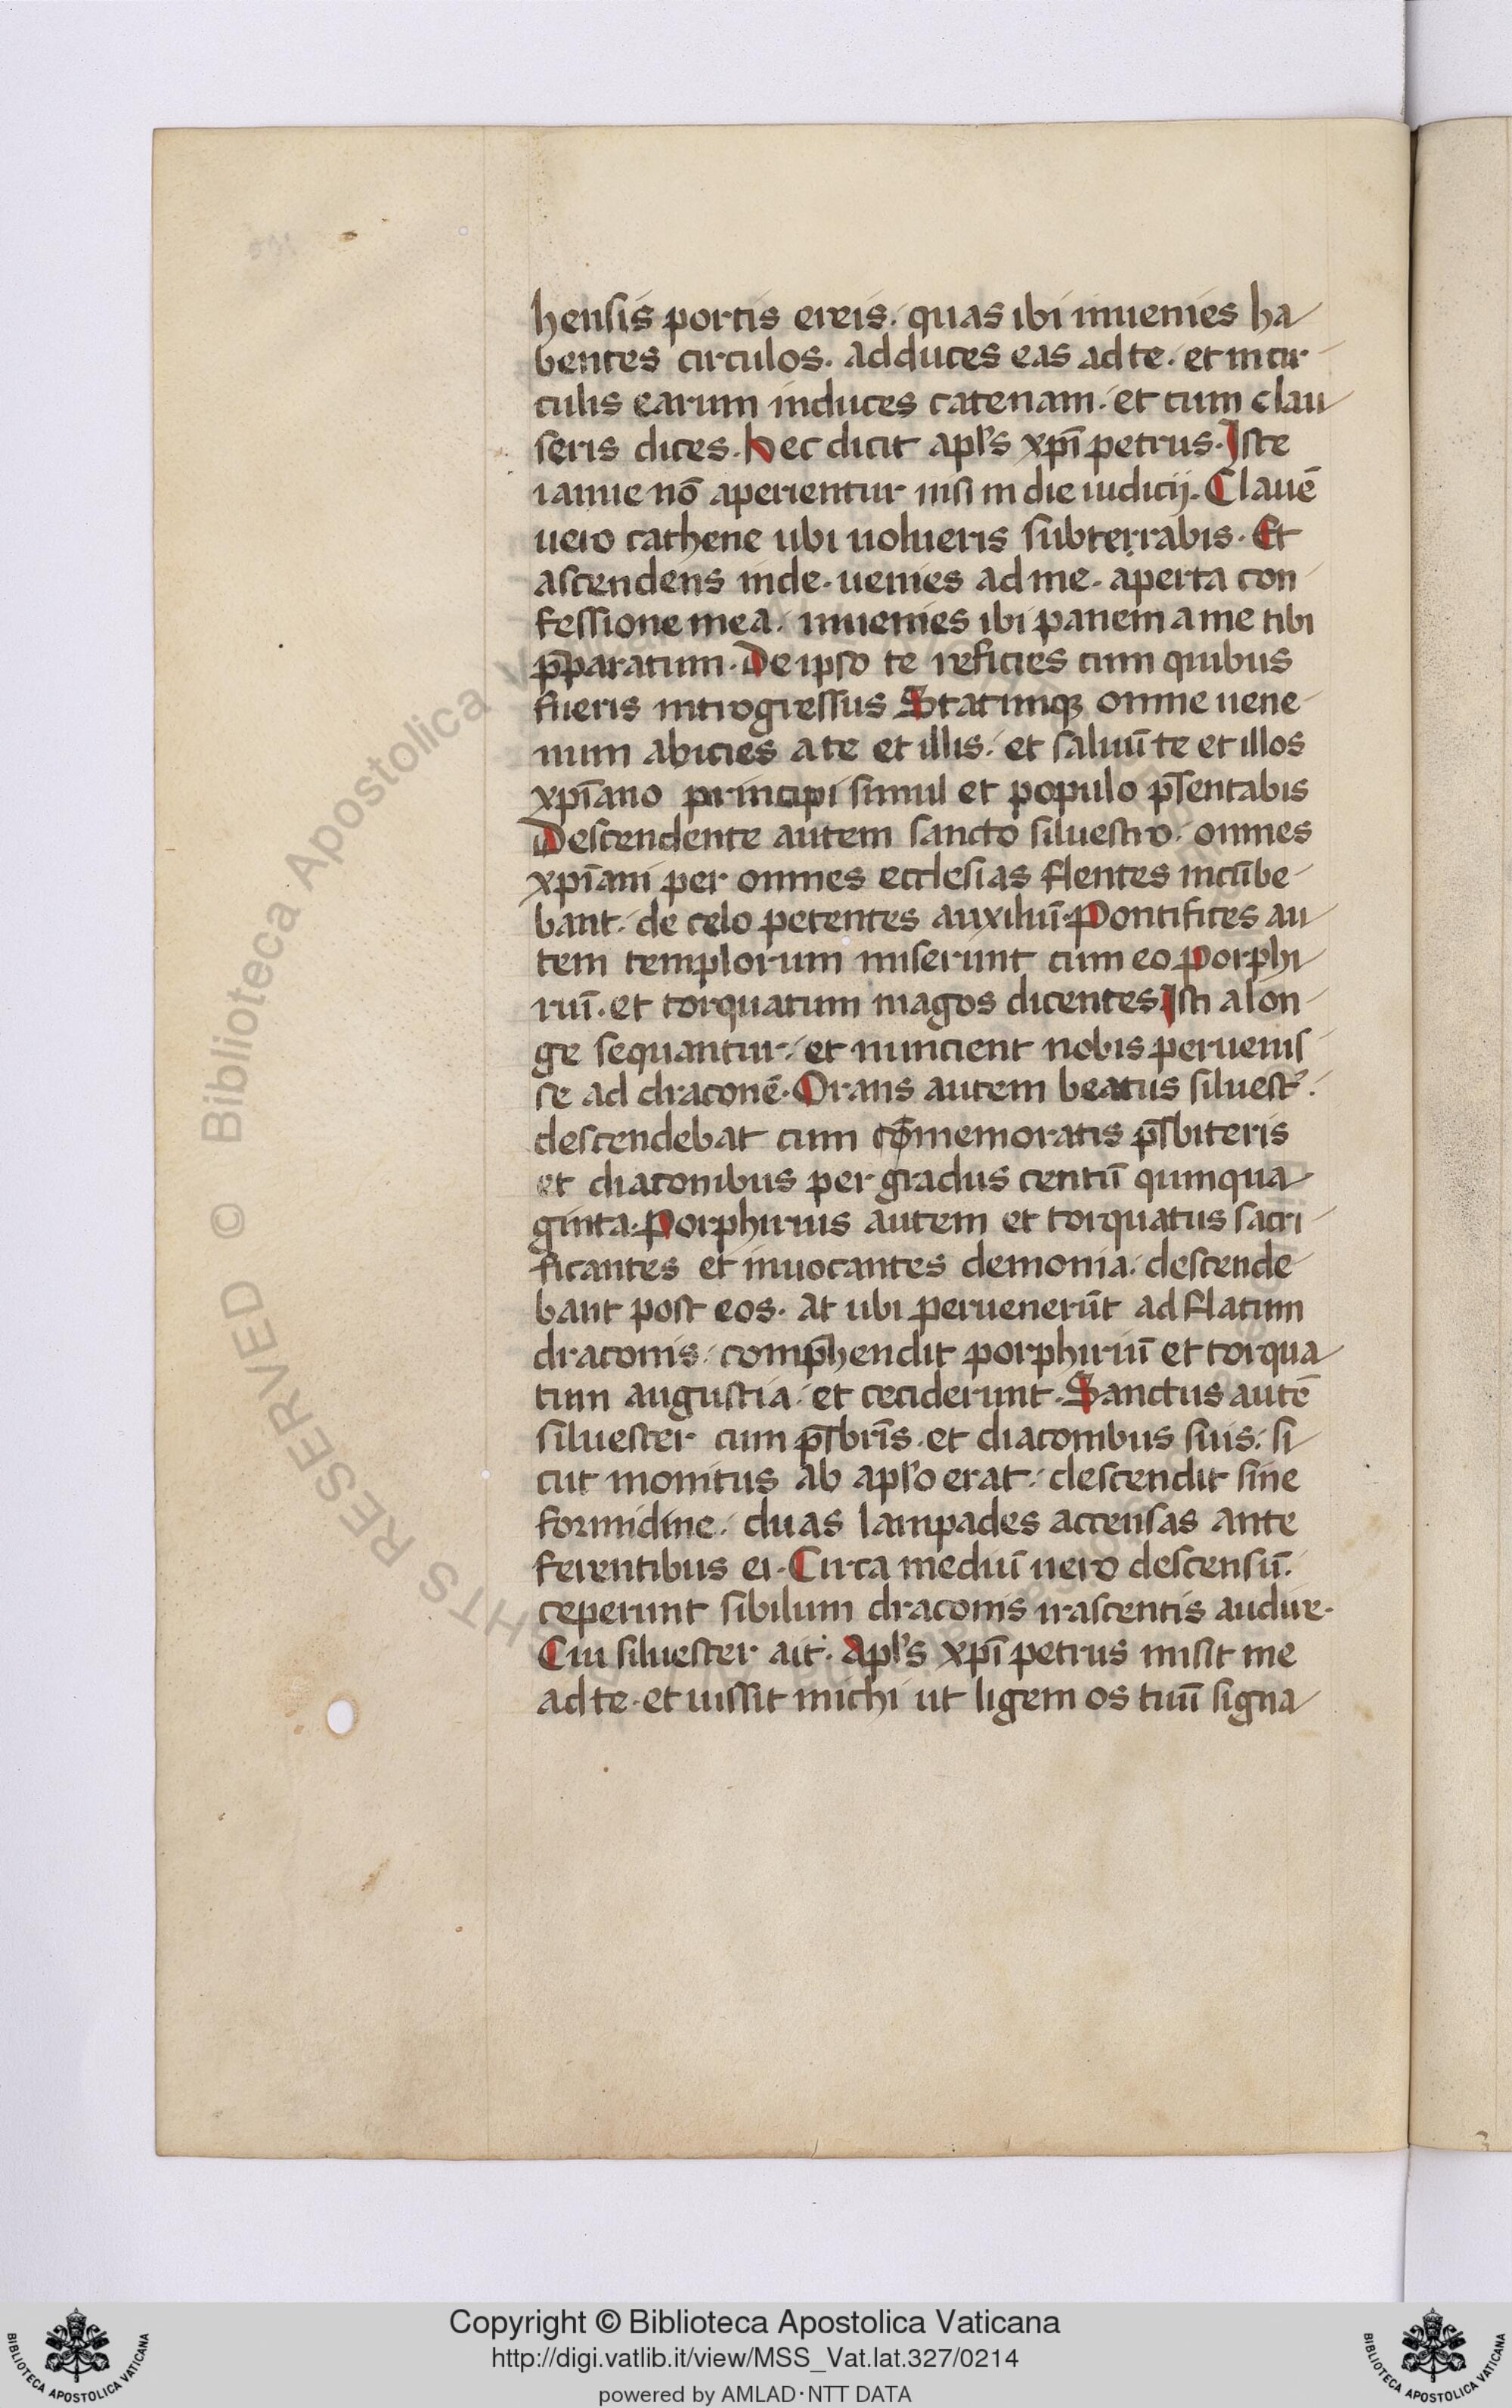 hensis portis ereis. quas ibi inuenies ha
bentes circulos. adduces eas ad te. et in cir
culis earum induces catenam. et cum clau
seris dices. Hec dicit apl's xp̄i petrus. Iste
ianue nō aperientur nisi in die iudicij. Clauē
uero cathene ubi uolueris subterrabis. Et
ascendens inde. uenies ad me. aperta con
fessione mea. inuenies ibi panem a me tibi
p̄paratum. De ipso te reficies cum quibus
fueris introgressus Statimqꝫ omne uene
num abicies a te et illis. et saluū te et illos
xp̄iano principi simul et populo p̄sentabis
Descendente autem sancto siluestro. omnes
xp̄iani per omnes ecclesias flentes incūbe
bant. de celo petentes auxiliū. Pontifices au
tem templorum miserunt cum eo Porphi
riū. et torquatum magos dicentes Isti a lon
ge sequantur. et nuncient nobis peruenis
se ad draconē. Orans autem beatus siluest'.
descendebat cum cōmemoratis p̄sbiteris
et diaconibus per gradus centū quinqua
ginta. Porphirius autem et torquatus sacri
ficantes et inuocantes demonia. descende
bant post eos. at ubi peruenerūt ad flatum
draconis. comp̄hendit porphiriū et torqua
tum augustia. et ceciderunt. Sanctus autē
siluester cum p̄sbrīs. et diaconibus suis. si
cut monitus ab apl'o erat. descendit sine
formidine. duas lampades accensas ante
ferentibus ei. Circa mediū uero descensū.
ceperunt sibilum draconis irascentis audire.
Cui siluester ait. Apl's xp̄i petrus misit me
ad te. et iussit michi ut ligem os tuū signa
© Biblioteca Apostolica V
HTS RESERVED
Copyright © Biblioteca Apostolica Vaticana
http://digi.vatlib.it/view/MSS_Vat.lat.327/0214
powered by AMLAD·NTT DATA
BIBLIOTECA APOSTOLICA VATICANA
BIBLIOTECA APOSTOLICA VATICANA